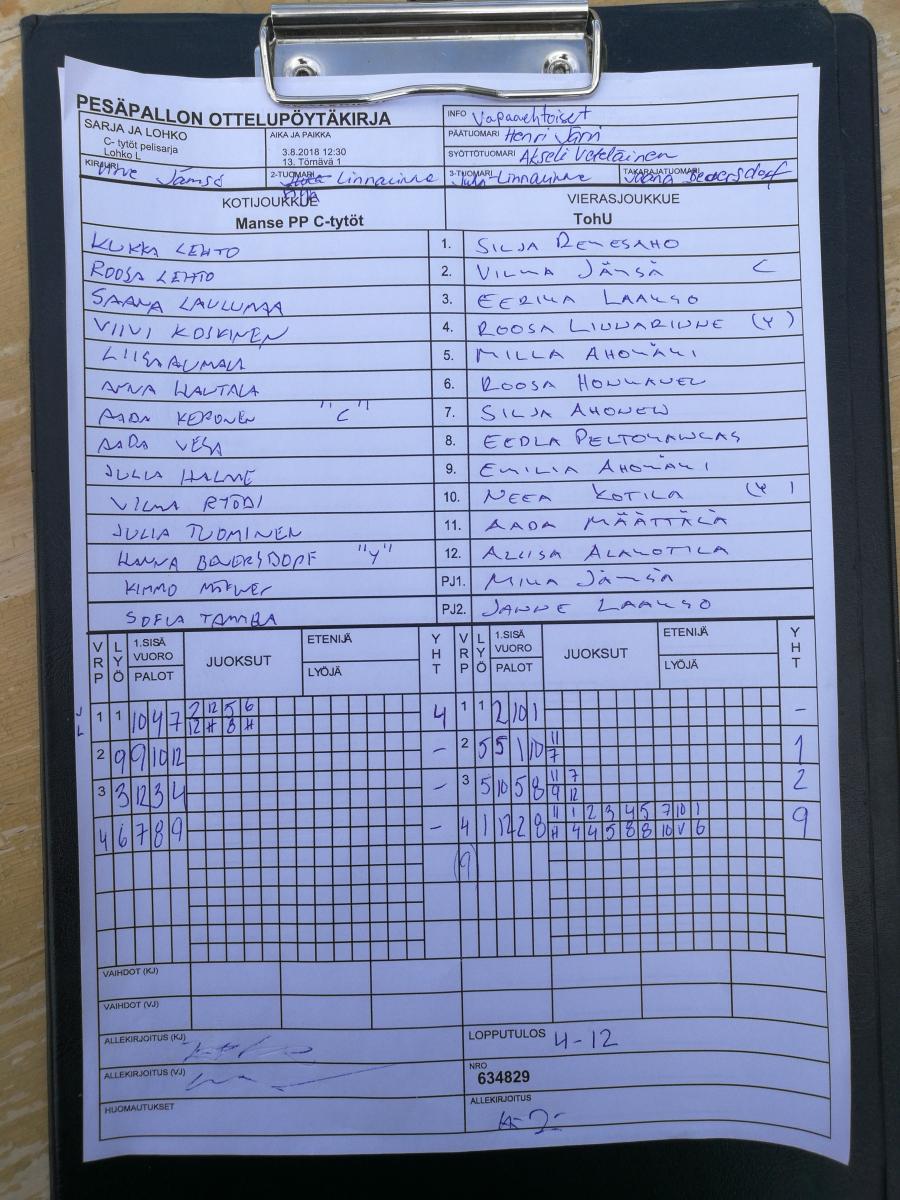 PESÄPALLON OTTELUPÖYTÄKIRJA
SARJA JA LOHKO
C- tytöt pelisarja
Lohko L
AIKA JA PAIKKA
3.8.2018 12:30
13. Törnävä 1
INFO Vapaaehtoiset
PÄÄTUOMARI Henri Järvi
SYÖTTÖTUOMARI Akseli Veteläinen
KIRJURI Jämsä
2-TUOMARI Linnarinne
3-TUOMARI Juha Linnarinne
TAKARAJATUOMARI Jaana Bewersdorf
KOTIJOUKKUE
Manse PP C-tytöt
VIERASJOUKKUE
TohU
KUKKA LEHTO 1. SILJA RENESAHO
ROOSA LEHTO 2. VILMA JÄMSÄ C
SAANA LAULUMAA 3. EERIKA LAAKSO
VIIVI KOSKINEN 4. ROOSA LINNARINNE (Y)
5. MILLA AHOMÄKI
ANNA HAUTALA 6. ROOSA HONKANEN
AADA KEPONEN "C" 7. SILJA AHONEN
AADA VESA 8. EEDLA PELTOKANGAS
JULIA HALME 9. EMILIA AHOMÄKI
VILMA RYÖDI 10. NEEA KOTILA (Y)
JULIA TUOMINEN 11. AADA MÄÄTTÄLÄ
HANNA BEWERSDORF "Y" 12. ALIISA ALAKOTILA
KIMMO PJ1. MIKA JÄMSÄ
SOFIA PJ2. JANNE LAAKSO
VRP LYÖ 1.SISÄ VUORO PALOT JUOKSUT ETENIJÄ LYÖJÄ YHT VRP LYÖ 1.SISÄ VUORO PALOT JUOKSUT ETENIJÄ LYÖJÄ YHT
1 1 10 4 7 2 12 5 6 4 1 1 2 10 1 -
12 H 8 H
2 9 9 10 12 - 2 5 5 1 10 11 1
7
3 3 12 3 4 - 3 5 10 5 8 11 7 2
9 12
4 6 7 8 9 - 4 1 12 2 8 11 1 2 3 4 5 7 10 1 9
H 4 4 5 8 8 10 V 6
(9)
VAIHDOT (KJ)
VAIHDOT (VJ)
ALLEKIRJOITUS (KJ)
LOPPUTULOS 4-12
ALLEKIRJOITUS (VJ)
NRO
634829
HUOMAUTUKSET
ALLEKIRJOITUS